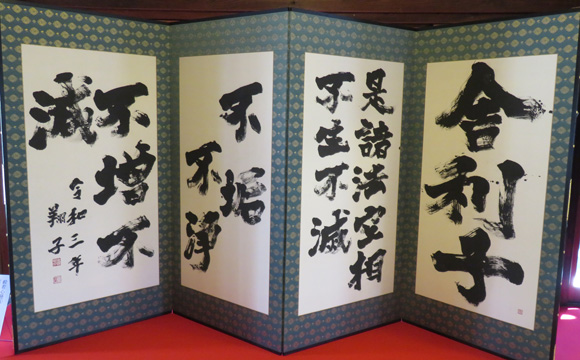 舎利子
是諸法空相
不生不滅
不垢
不浄
不増不
減
令和三年
翔子